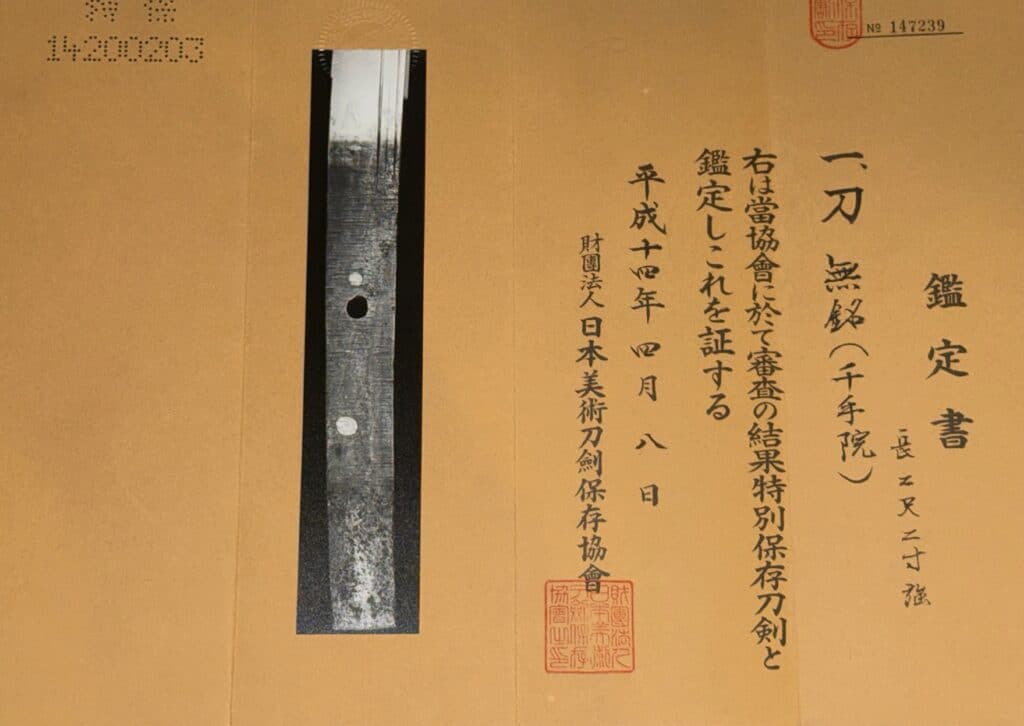 特保
14200203
№ 147239
鑑定書
長二尺二寸強
一、刀 無銘(千手院)
右は當協會に於て審査の結果特別保存刀剣と
鑑定しこれを証する
平成十四年四月八日
財團法人日本美術刀劍保存協會